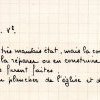 , V°.
très mauvais état, mais la com
la réparer ou en construire
furent faites.
plancher de l'église et d